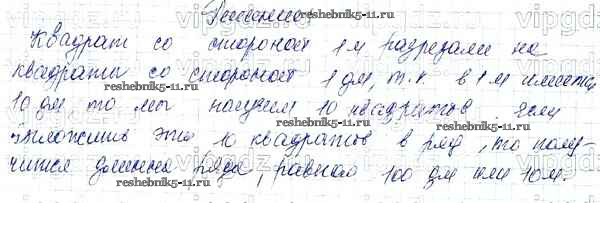 Решение
Квадрат со стороной 1 м разрезали на
квадраты со стороной 1 дм, т.к. в 1 м имеется
10 дм то мы получим 10 квадратов если
выложить эти 10 квадратов в ряд, то полу-
чится длинна ряда, равная 100 дм или 10 м.
reshebnik5-11.ru
reshebnik5-11.ru
reshebnik5-11.ru
reshebnik5-11.ru